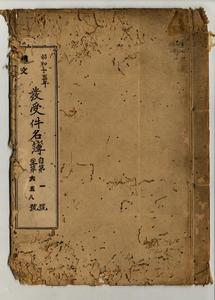 昭和十五年
發受件名簿
自第一號
至第六五八號
文